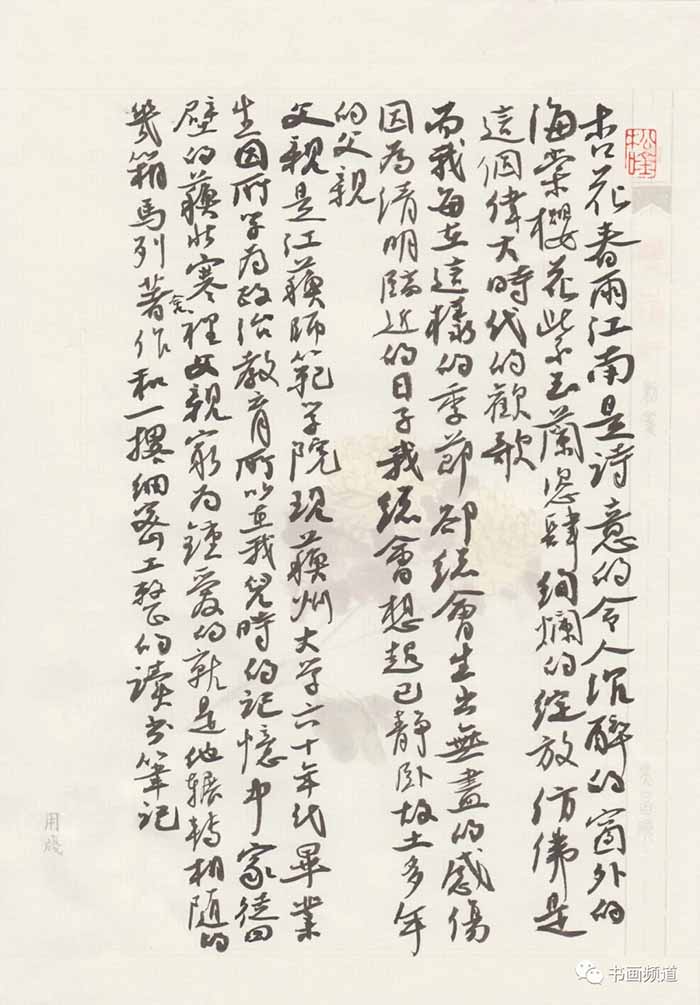 杏花春雨江南是詩意的令人沉醉的窗外的
海棠櫻花紫玉蘭恣肆絢爛的綻放仿佛是
這個偉大時代的歡歌
而我每在這樣的季節卻總會生出無盡的感傷
因為清明臨近的日子我總會想起已靜卧故土多年
的父親
父親是江蘇師範学院現蘇州大学六十年代畢業
生因所学為政治教育所以在我兒時的記憶中家徒四
壁的蘇北寒舍裡父親最為鍾愛的就是他輾轉相隨的
幾箱馬列著作和一摞細密工整的讀书筆記
用箋
书画频道